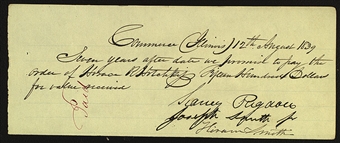 Commerce (Illinois) 12th August 1839
Seven years after date we promise to pay the
order of Horace R Hotchkiss Fifteen Hundred Dollars
for value received
Sidney Rigdon
Joseph Smith Jr
Hiram Smith